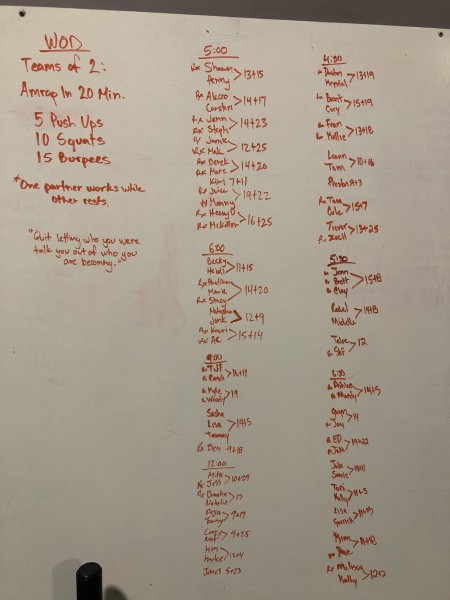 WOD
Teams of 2:
Amrap In 20 Min.
5 Push Ups
10 Squats
15 Burpees
*One partner works while
other rests.
"Quit letting who you were
talk you out of who you
are becoming."
5:00
Rx Shawn
Penny >13+15
Rx Alecro
Carsten >14+17
Rx Jenn
Rx Steph >14+23
Jamie
Rx Mak >12+25
Rx Derek
Rx Marc >14+20
Kim 7+11
Rx Julie
Manny >19+22
Rx Henry
Rx McKellen >16+25
6:00
Becky
Heidi >11+15
Rx Pauline
Marie
Rx Stacy >14+20
Natasha
Jank >12+9
Rx Kauri
Rx AC >15+14
9:00
Rx Tiff
Rx Randi
Rx Kyle
Rx Woody >19
Sasha
Lisa >14+5
Tammy
Rx Deb 9+18
12:00
Mitch
Rx Jess >10+29
Rx Brooke
Natalie >17
Tammy >9+17
>9+25
Kim
Haylee >12+4
James 5+23
4:30
Rx Dustin
Krystal >13+19
Rx Brant
Cory >15+19
Rx Fran
Rx Hollie >13+18
Leann
Tom >10+16
Preston 9+3
Rx Tom
Cole >15+7
Trevor >13+25
5:30
Rx Jenn
Rx Brett >15+8
Rx Clay
Rebel
Michelle >14+8
>12
Rx Stef
6:30
Rx Ashlee
Rx Mandy >14+5
Rx Jay
Rx ED >19+22
Julia
Tori
Kelly >11+3
Lisa
Garrick
Kim >11+18
Dave
Rx Melissa
Kathy >12+2